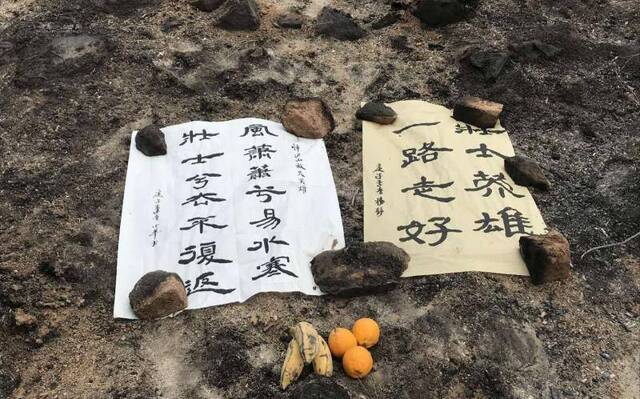 風蕭蕭兮易水寒
壯士兮去不復返
壯士英雄
一路走好